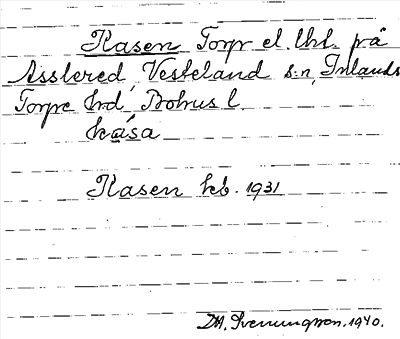 Kasen Torp el. lht. på
Asslered, Vesteland s:n, Inlands
Torpe hrd, Bohus l.
kåsa
Kasen kb. 1931
1940.